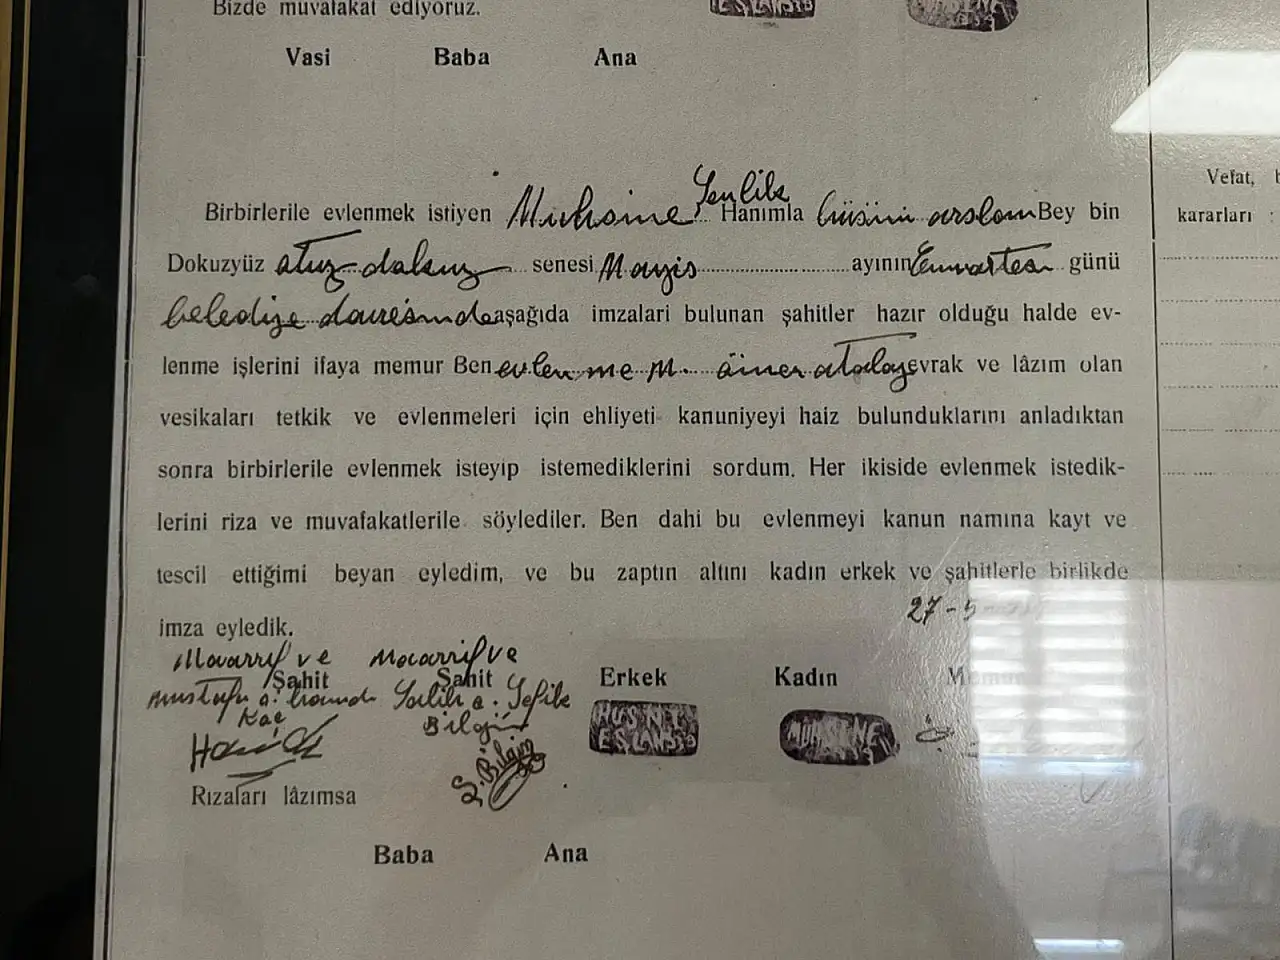 Bizde muvafakat ediyoruz.
Vasi Baba Ana
Birbirlerile evlenmek istiyen Muhsine Şenlik Hanımla hüsünü arslan Bey bin
Dokuzyüz atuz dakuz senesi Mayis ayının günü
belediye dairesinde aşağıda imzalari bulunan şahitler hazır olduğu halde ev-
lenme işlerini ifaya memur Ben evlenme M. ömer atalay evrak ve lâzım olan
vesikaları tetkik ve evlenmeleri için ehliyeti kanuniyeyi haiz bulunduklarını anladıktan
sonra birbirlerile evlenmek isteyip istemediklerini sordum. Her ikiside evlenmek istedik-
lerini riza ve muvafakatlerile söylediler. Ben dahi bu evlenmeyi kanun namına kayt ve
tescil ettiğimi beyan eyledim, ve bu zaptın altını kadın erkek ve şahitlerle birlikde
imza eyledik.
27-5
Muarrif ve Muarrif ve
Şahit Şahit Erkek Kadın Memur
Mustafa o. Salih o. Şefik
Bilgin
S. Bilgin
HÜSNÜ
MUHSİNE
Rızaları lâzımsa
Baba Ana
Vefat,
kararları :